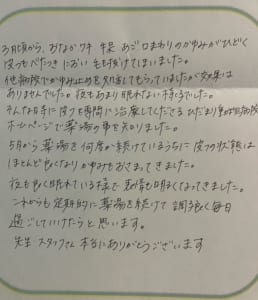 3月頃から、おなか ワキ 手足 あご 口まわりのかゆみがひどく
皮フもべたつき におい も付けてしまいました。
他病院でかゆみ止めを処方してもらっていましたが効果は
ありませんでした。夜もあまり眠れない様子でした。
そんな時に皮フを専門に治療してくださる ひだまり動物病院
ホームページで薬浴の事を知りました。
5月から薬浴を何度か続けているうちに皮フの状態は
ほとんど良くなり かゆみもおさまってきました。
夜も良く眠れている様で 表情も明るくなってきました。
これからも定期的に薬浴を続けて 調子良く毎日
過ごしていけたらと思います。
先生 スタッフさん 本当にありがとうございます